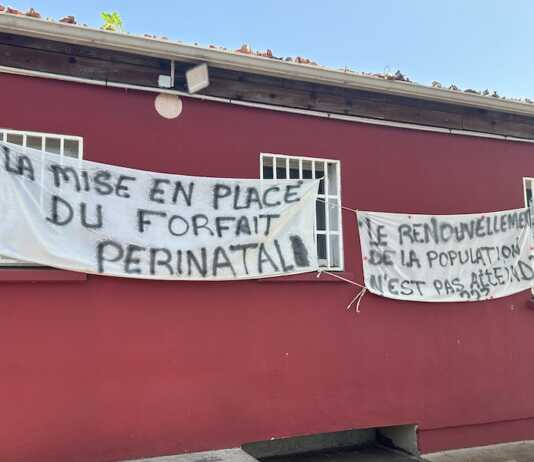 LA MISE EN PLACE
DU FORFAIT
PERINATAL
LE RENOUVELLEMENT
DE LA POPULATION
N'EST PAS ATTEND
???